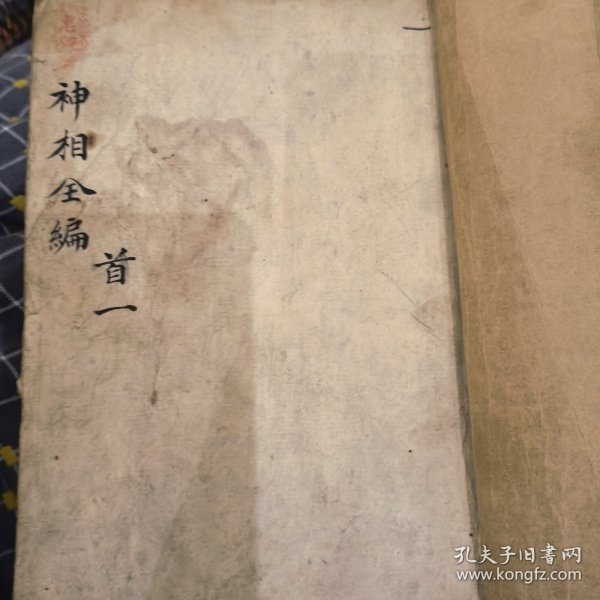 神相全編
首一
孔夫子旧書网
www.kongfz.com